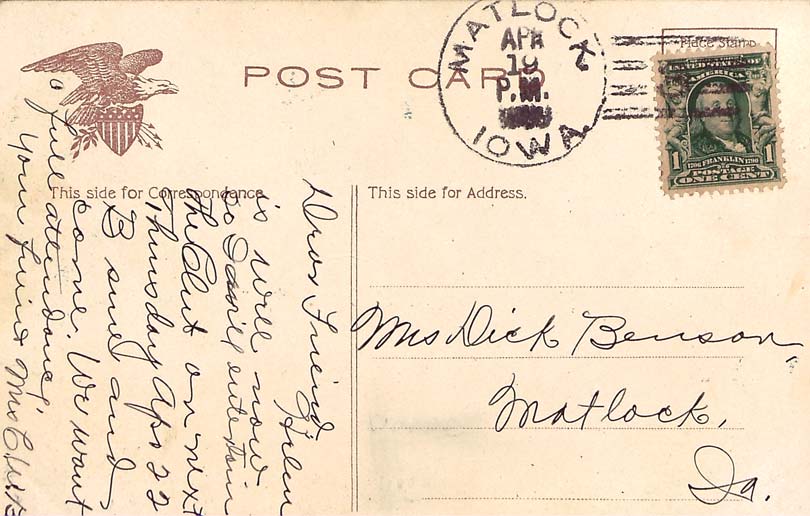 POST CARD
Place Stamp
MATLOCK
APR
19
P.M.
IOWA
UNITED STATES OF
AMERICA
1 1706 FRANKLIN 1790 1
POSTAGE
ONE CENT
This side for Correspondence
This side for Address.
Dear Friend,
Helen
is well now
So I will entertain
the Club on next
Thursday Apr 22
B sure and
come. We want
a full attendance,
Your friend Mrs
Mrs Dick Benson,
Matlock,
Ia.